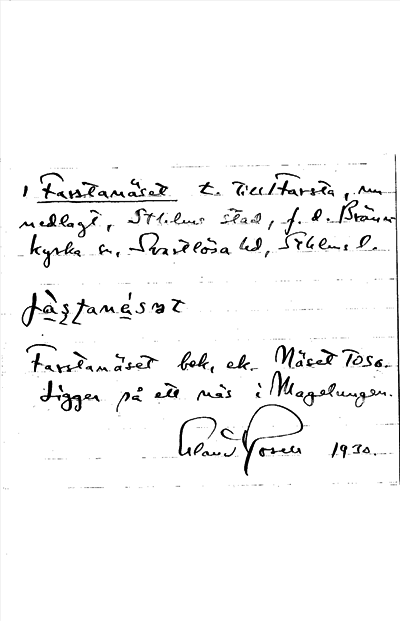 1 Farstanäset t. Till Farsta, nu
nedlagt, Sthlms stad, f. d. Bränn
kyrka sn, Svartlösa hd, Sthlms l.
Farstanäset bek, ek. Näset
Ligger på ett näs i Magelungen.
1930.